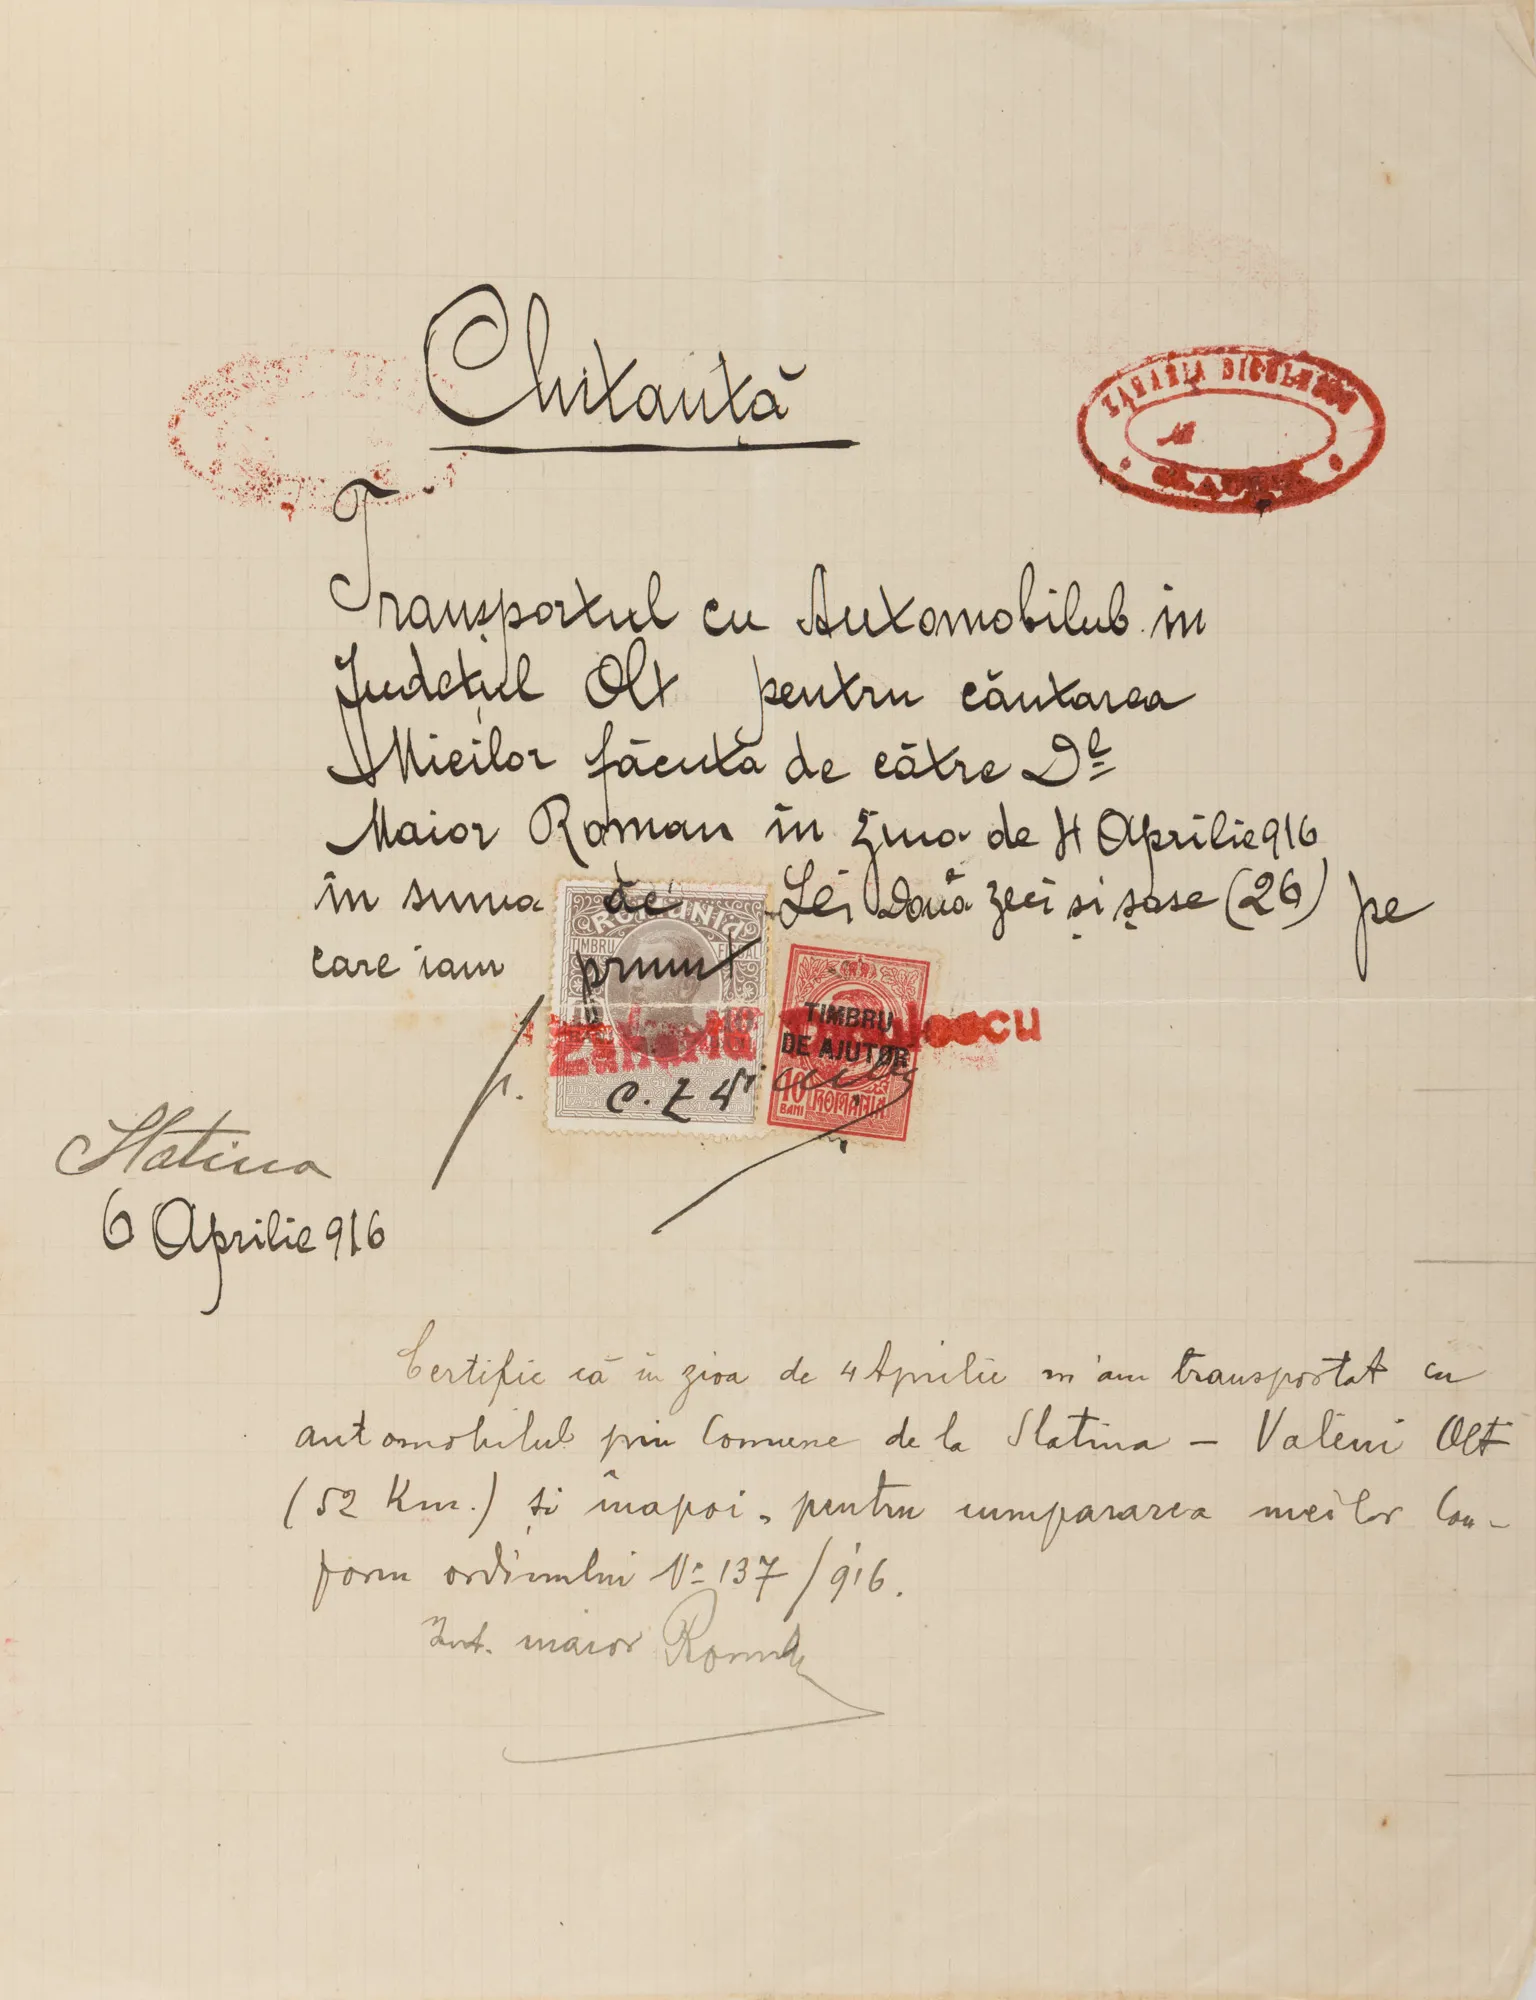 Chitanță
ZAHARIA DICULESCU
SLATINA
Transportul cu Automobilul in
Județul Olt pentru căutarea
Mieilor făcută de către Dl
Maior Roman în ziua de 4 Aprilie 916
în suma de Lei Două zeci și șase (26) pe
care iam primit
ROMÂNIA
TIMBRU FISCAL
TIMBRU
DE AJUTOR
10
BANI
ROMANIA
Zaharia Diculescu
p.
Slatina
6 Aprilie 916
Certific că în zioa de 4 Aprilie m'am transportat cu
automobilul prin Comune de la Slatina – Valeni Olt
(52 Km.) și înapoi, pentru cumpararea meilor Con-
form ordinului No 137/916.
Int. maior Roman